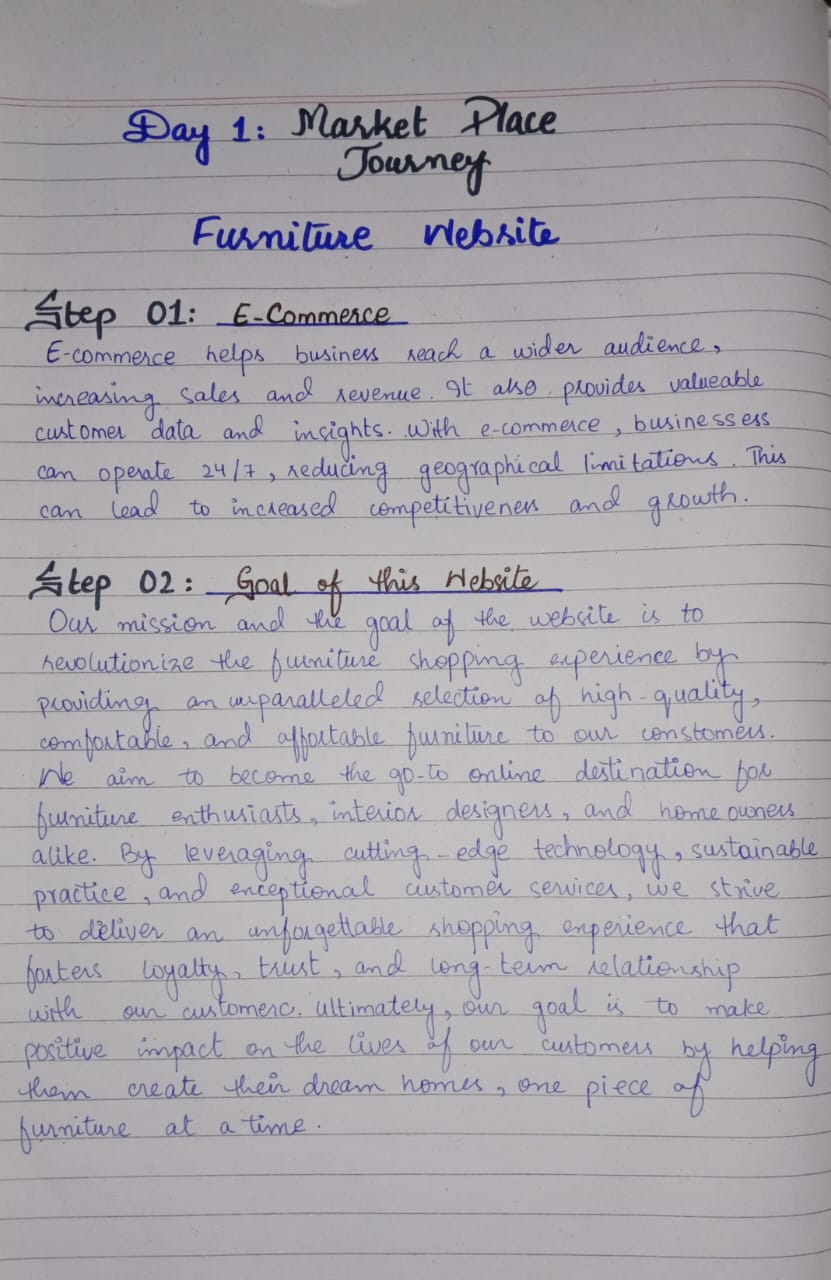 Day 1: Market Place
Journey
Furniture Website
Step 01: E-Commerce
E-commerce helps business reach a wider audience,
increasing sales and revenue. It also provides valueable
customer data and insights. With e-commerce, businessess
can operate 24/7, reducing geographical limitations. This
can lead to increased competitiveness and growth.
Step 02: Goal of this Website
Our mission and the goal of the website is to
revolutionize the furniture shopping experience by
providing an unparalleled selection of high-quality,
comfortable, and affortable furniture to our constomers.
We aim to become the go-to online destination for
furniture enthusiasts, interior designers, and home owners
alike. By leveraging cutting-edge technology, sustainable
practice, and exceptional customer services, we strive
to deliver an unforgettable shopping experience that
fosters loyalty, trust, and long-term relationship
with our customerc. Ultimately, our goal is to make
positive impact on the lives of our customers by helping
them create their dream homes, one piece of
furniture at a time.